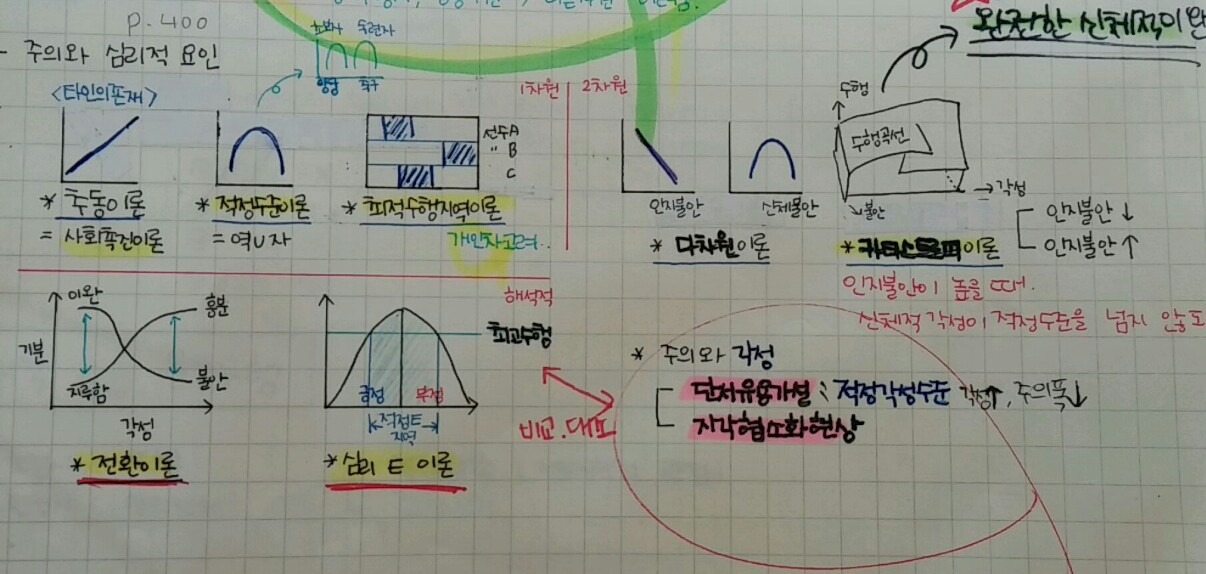 P.400
- 주의와 심리적 요인
초보자 숙련자
양궁 축구
<타인의존재>
1차원
2차원
선수A
" B
C
* 추동이론
= 사회촉진이론
* 적정수준이론
= 역U자
* 최적수행지역이론
개인차고려..
인지불안
신체불안
* 다차원이론
완전한 신체적이완
수행
수행곡선
각성
불안
* 카타스트로피이론
인지불안↓
인지불안↑
인지불안이 높을 때.
신체적 각성이 적정수준을 넘지 않도
해석적
이완
흥분
기분
지루함
불안
각성
* 전환이론
최고수행
긍정
부정
적정E
지역
* 심리 E 이론
비교.대조
* 주의와 각성
단서유용가설 : 적정각성수준 각성↑, 주의폭↓
지각협소화현상